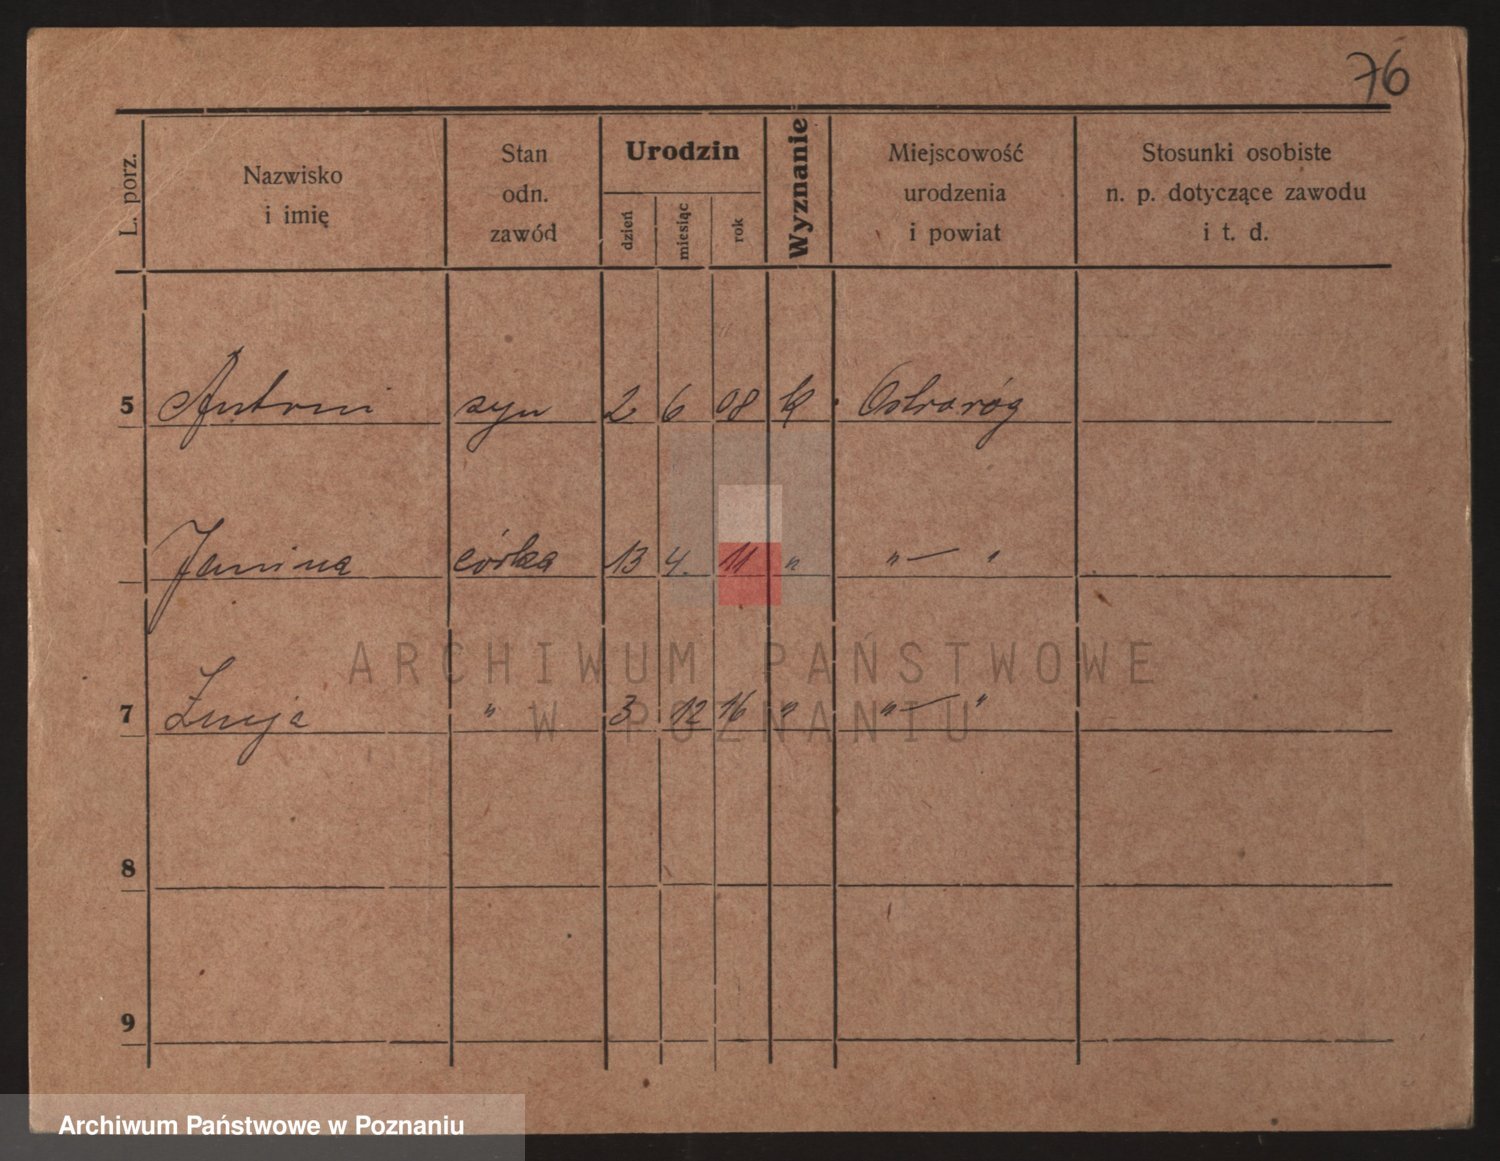 76
L. porz.
Nazwisko
i imię
Stan
odn.
zawód
Urodzin
dzień
miesiąc
rok
Wyznanie
Miejscowość
urodzenia
i powiat
Stosunki osobiste
n. p. dotyczące zawodu
i t. d.
5 Antoni syn 2 6 08 k. Ostroróg
Janina córka 13 4. 11 " " — "
7 " 3 12 16 " " — "
8
9
ARCHIWUM PAŃSTWOWE
W POZNANIU
Archiwum Państwowe w Poznaniu